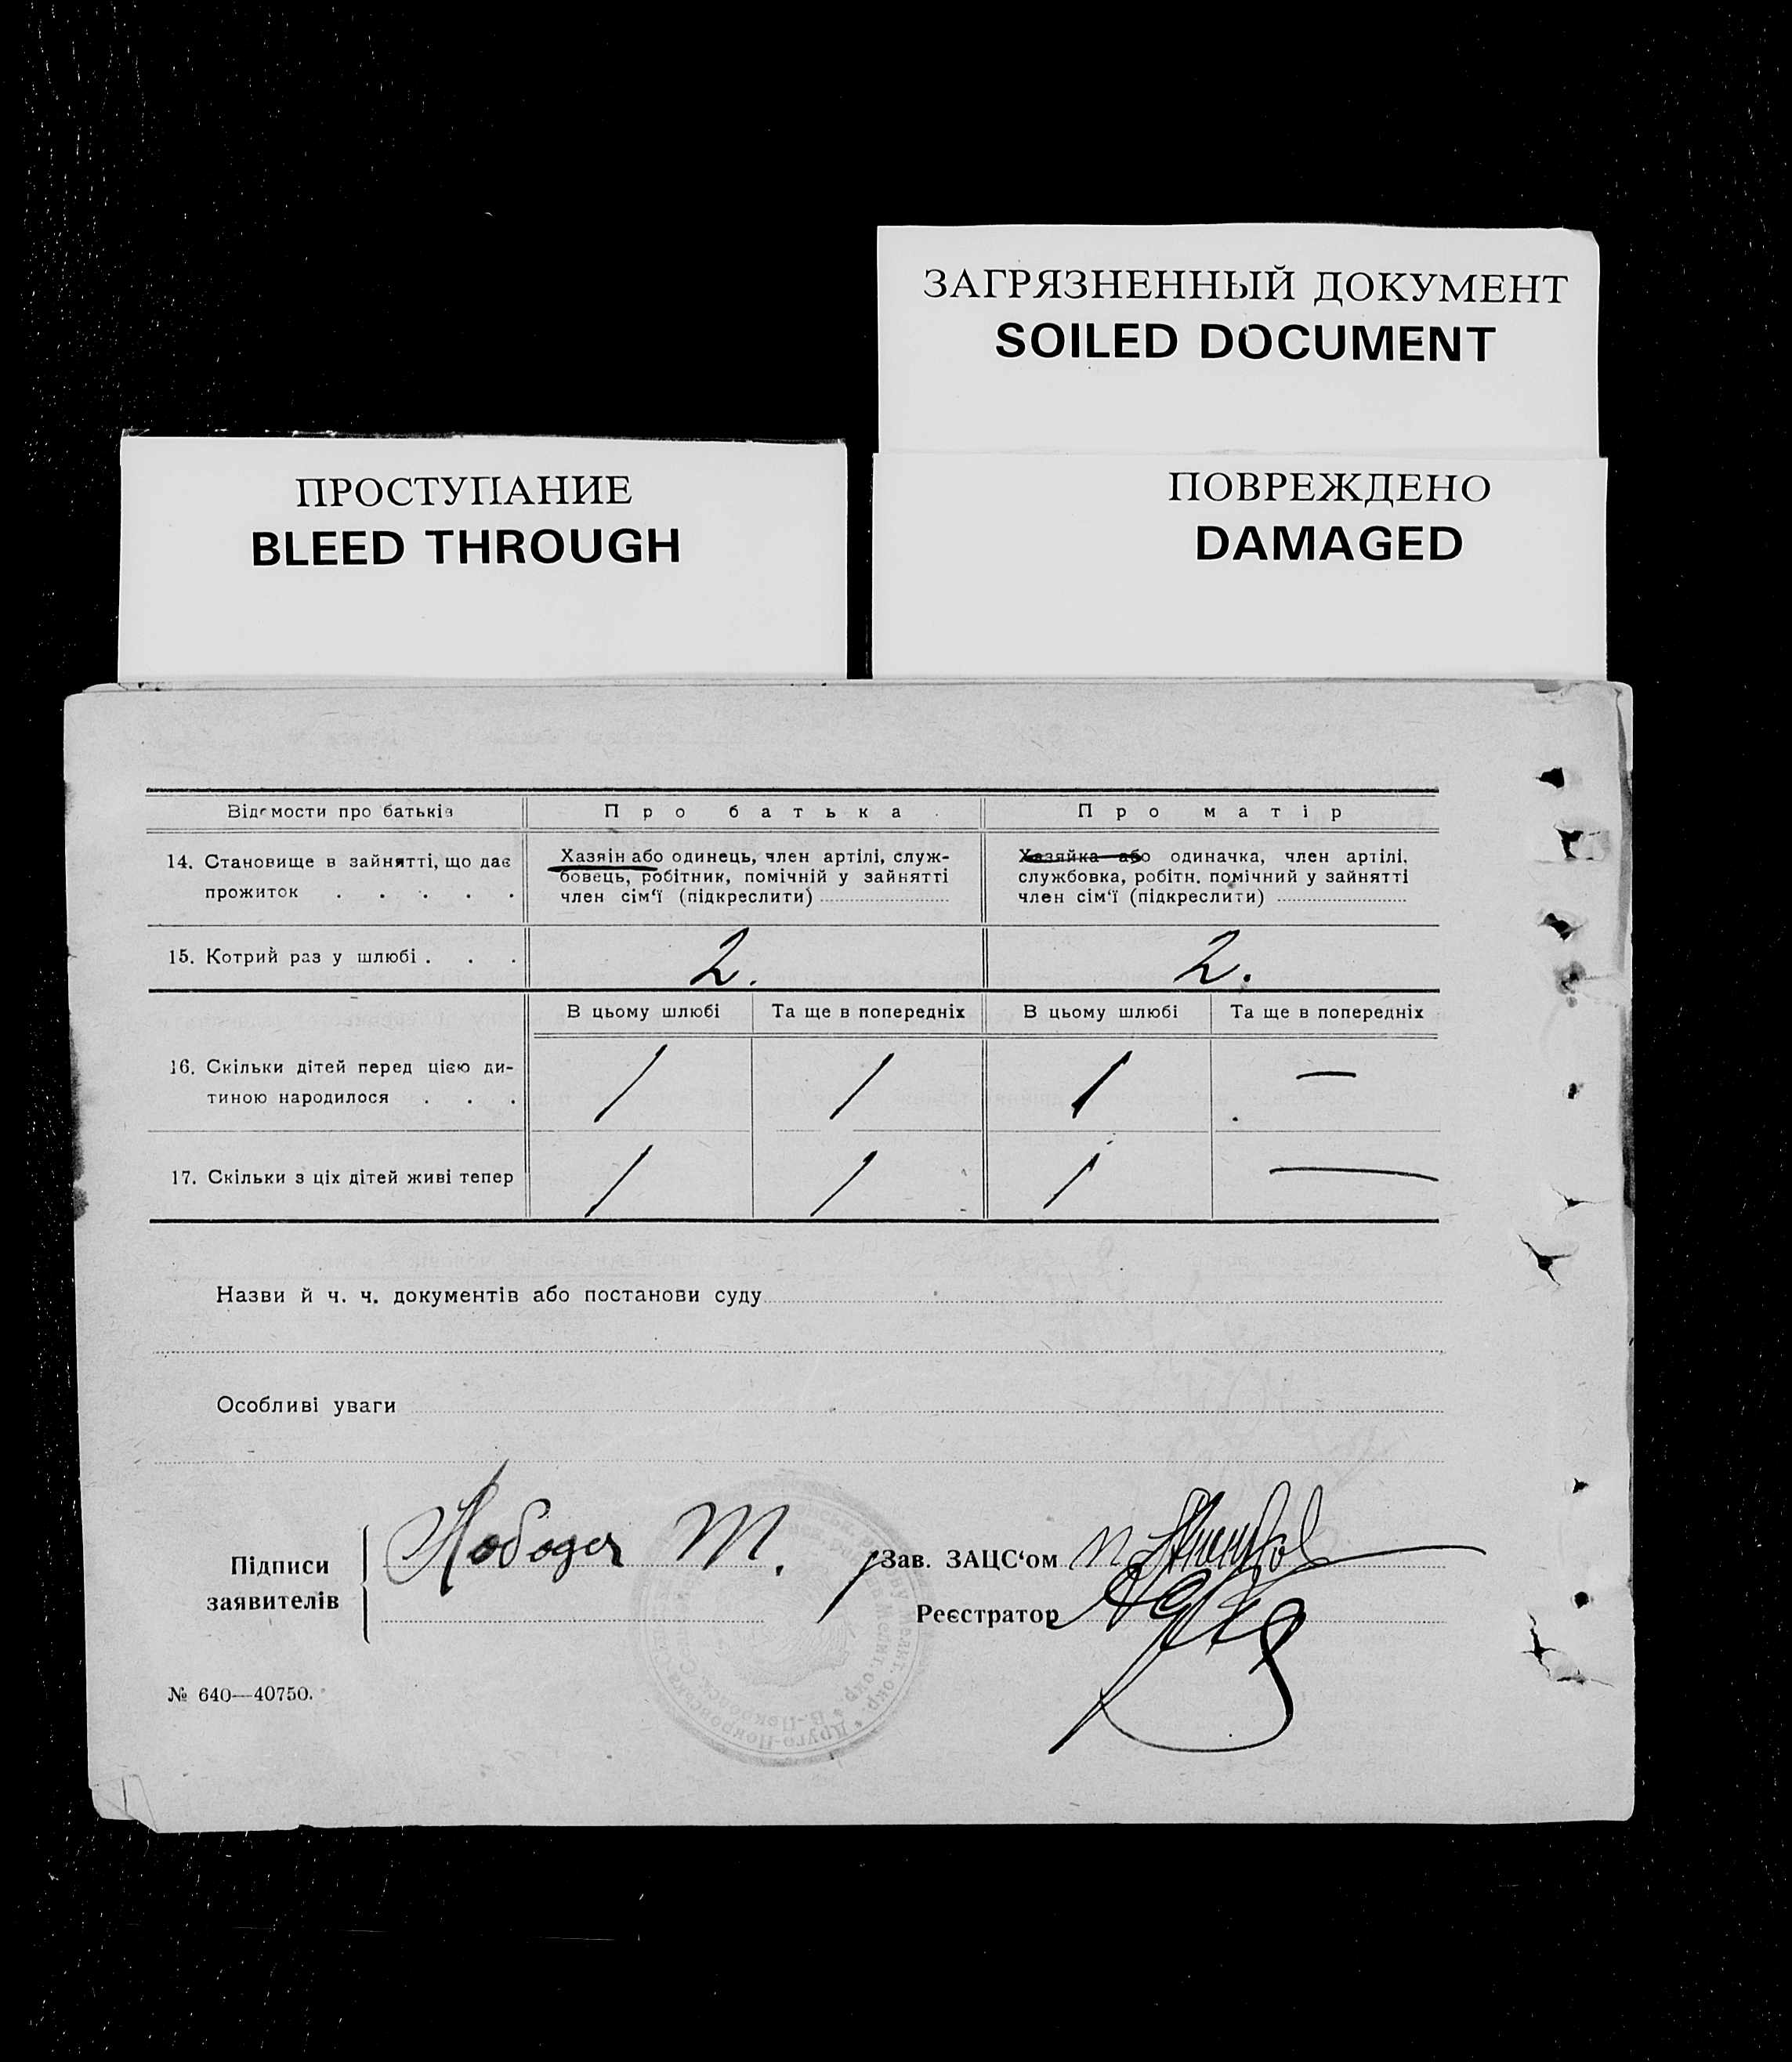 ЗАГРЯЗНЕННЫЙ ДОКУМЕНТ
SOILED DOCUMENT
ПРОСТУПАНИЕ
BLEED THROUGH
ПОВРЕЖДЕНО
DAMAGED
Відомости про батьків
Про батька
Про матір
14. Становище в зайнятті, що дає
прожиток . . . . .
Хазяін або одинець, член артілі, служ-
бовець, робітник, помічній у зайнятті
член сім‘ї (підкреслити)
Хазяйка або одиначка, член артілі,
службовка, робітн. помічний у зайнятті
член сім‘ї (підкреслити)
15. Котрий раз у шлюбі . . .
2.
2.
В цьому шлюбі
Та ще в попередніх
В цьому шлюбі
Та ще в попередніх
16. Скільки дітей перед цією ди-
тиною народилося . . .
1
1
1
—
17. Скільки з ціх дітей живі тепер
1
1
1
—
Назви й ч. ч. документів або постанови суду
Особливі уваги
Підписи
заявителів
Лобода М.
Зав. ЗАЦС‘ом
Реєстратор
Друго-Покровська
№ 640—40750.